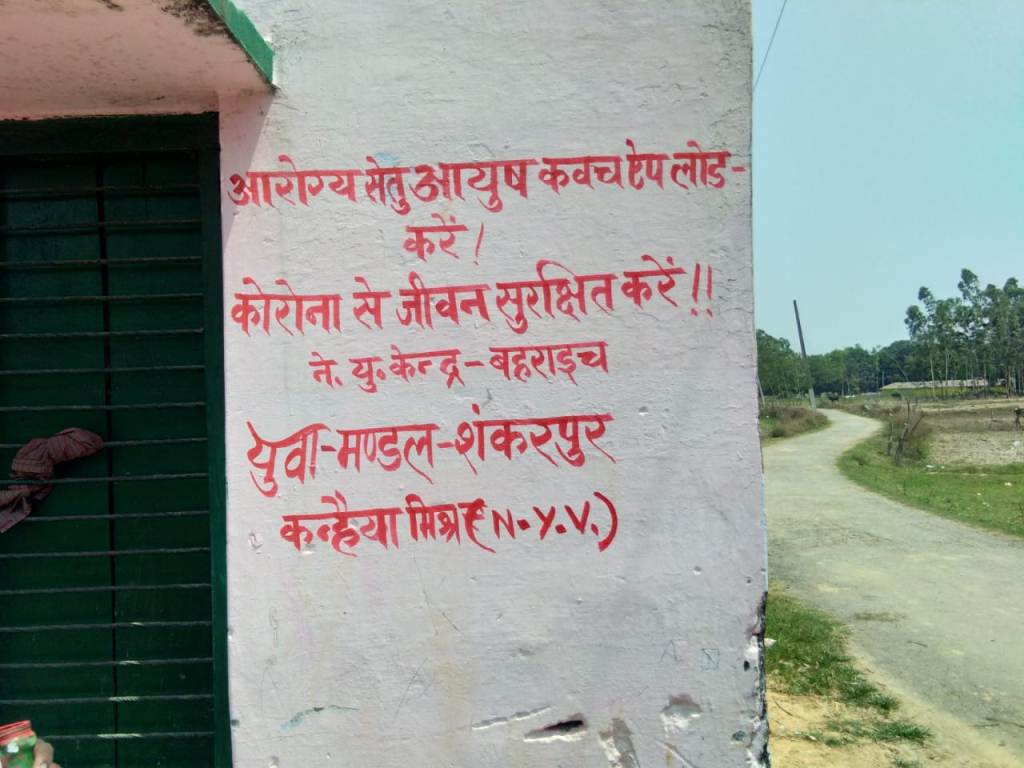 आरोग्य सेतु आयुष कवच ऐप लोड-
करें!
कोरोना से जीवन सुरक्षित करें!!
ने. यु. केन्द्र-बहराइच
युवा-मण्डल-शंकरपुर
कन्हैया मिश्र (N.Y.V.)